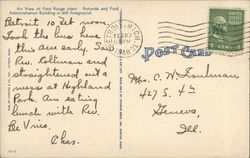 Air View of Ford Rouge plant. Rotunda and Ford
Administration Building in left foreground
Detroit 10 Set noon.
Took the bus here
this am early. Saw
Rev. Coltman and
straightened out a
mess at Highland
Park. Am eating
lunch with Rev.
De Vries.
Chas.
DETROIT, MICH.
1948
POST CARD
1 CENT 1
Mrs. C. W.
427 S. 4th
Geneva,
Ill.